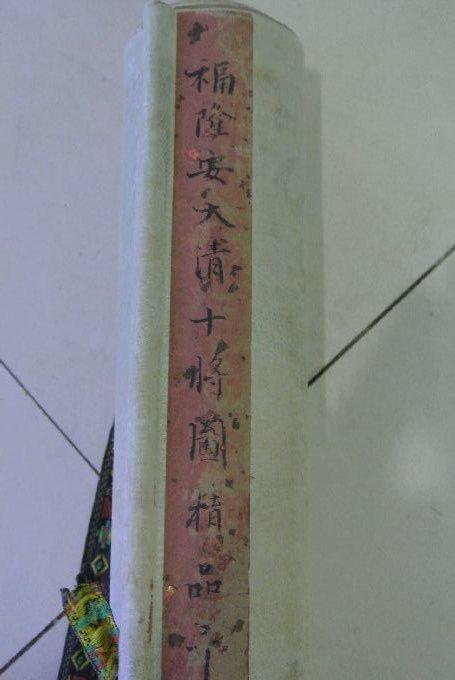 福隆安大清十將圖精品